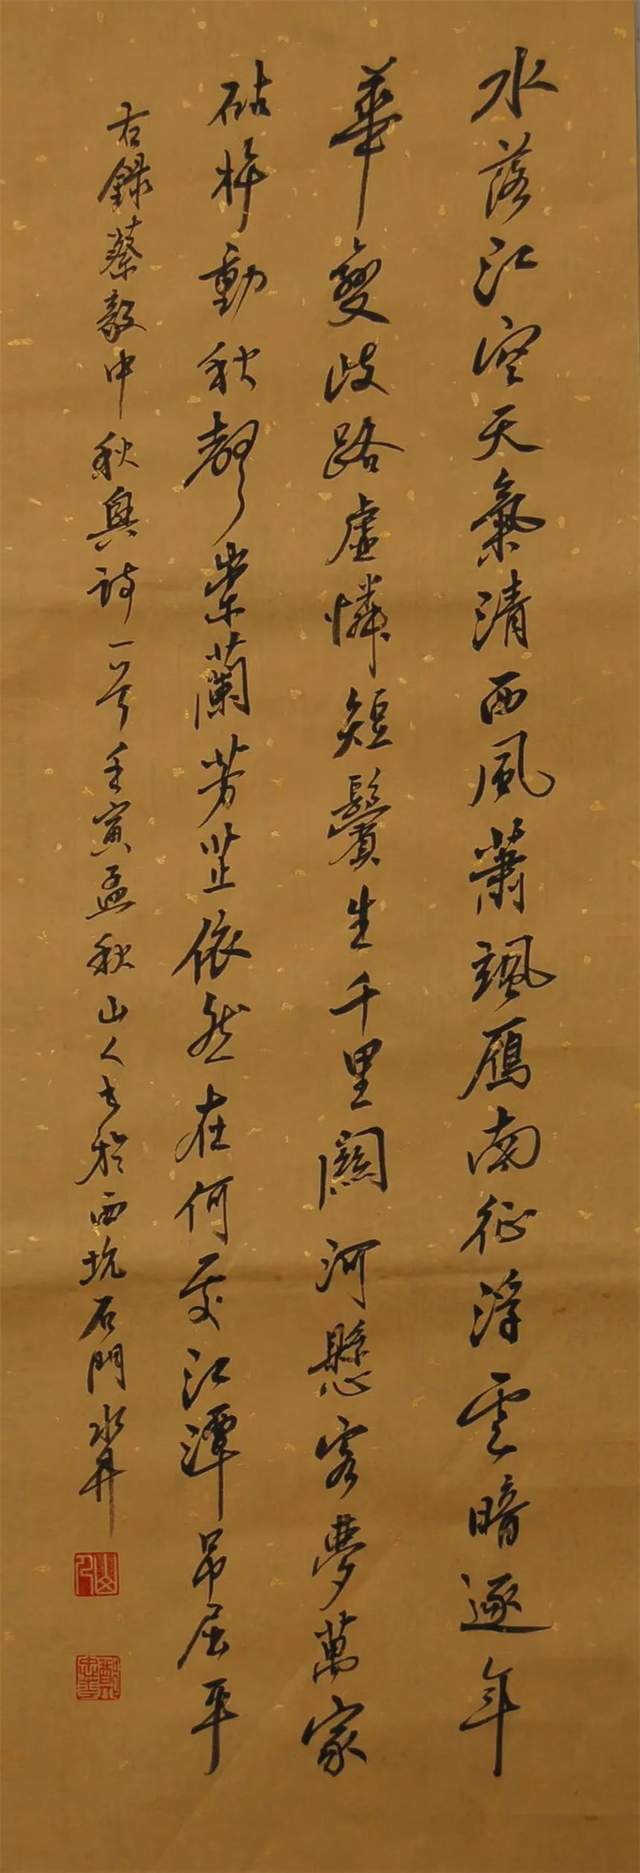 水落江空天氣清西風蕭颯雁南征浮雲暗逐年
華變歧路虛憐短鬢生千里關河懸客夢萬家
砧杵動秋聲崇蘭芳芷依然在何處江潭吊屈平
右錄蔡毅中秋興詩一首壬寅孟秋山人書於西坑石門
山人